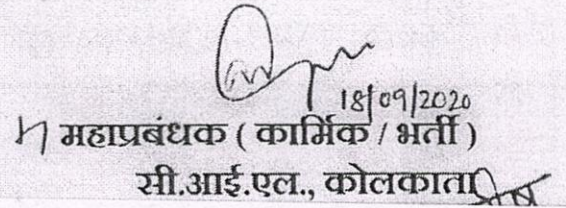 18/09/2020
महाप्रबंधक ( कार्मिक / भर्ती )
सी.आई.एल., कोलकाता